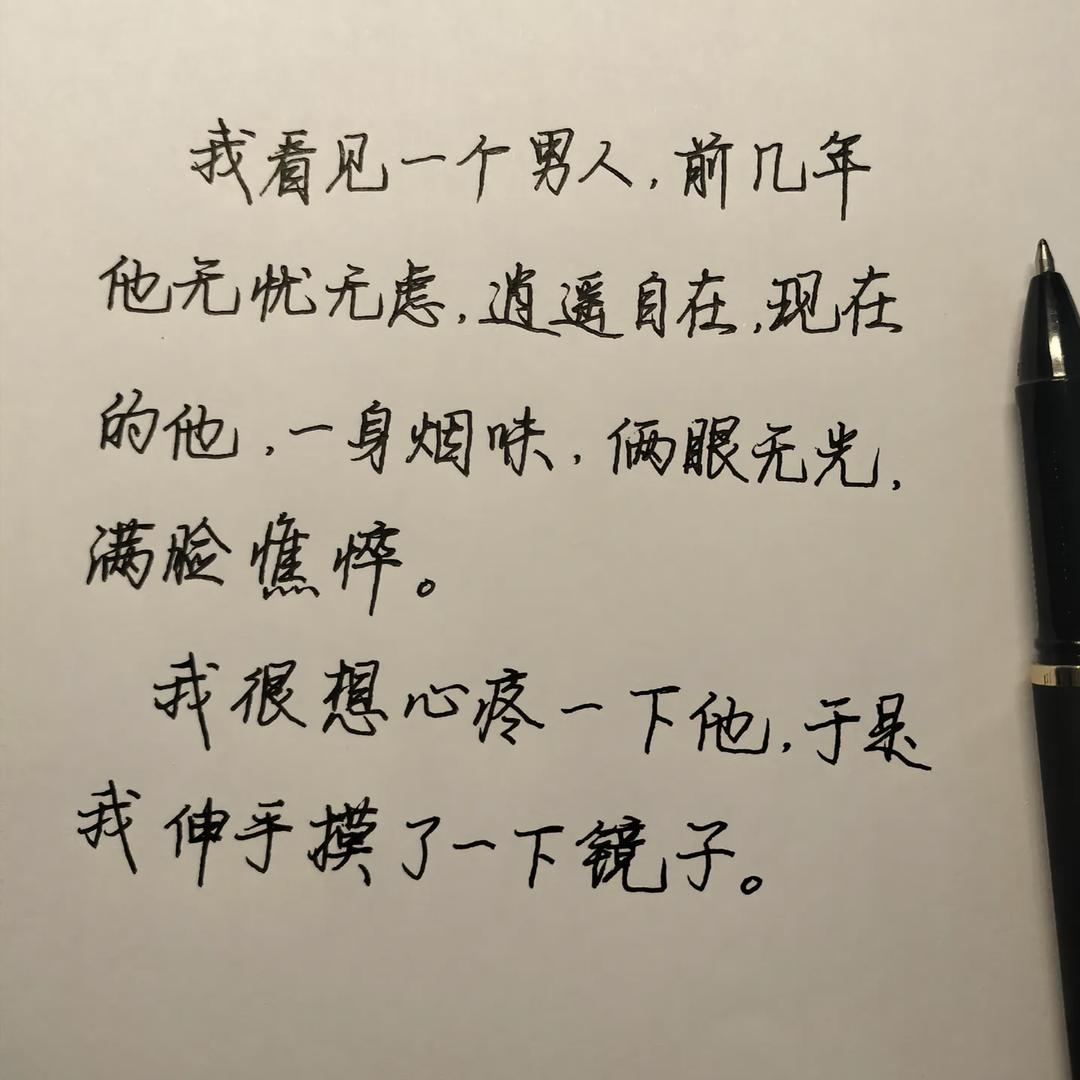 我看见一个男人,前几年
他无忧无虑,逍遥自在,现在
的他,一身烟味,俩眼无光,
满脸憔悴。
我很想心疼一下他,于是
我伸手摸了一下镜子。